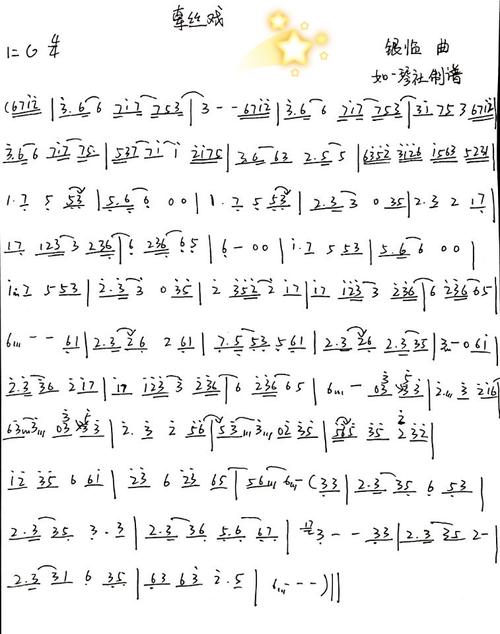 牵丝戏
1=G 4/4
银临 曲
如一琴社制谱
(671̇2̇ | 3̇.6̇6 71̇7 753 | 3 - - 671̇2̇ | 3̇.6 6 71̇7 753 | 3̇1̇ 75 3 671̇2̇ |
3̇.6 6 71̇7 75 | 537 71̇ 1̇ 2̇1̇75 | 3.6 63 2.5 5 | 6352 3126 1563 5231 |
1.7 5 53 | 5.6 6 0 0 | 1.7 5 53 | 2.3 3 0 35 | 2.3 2 17 |
17 123 3 236 | 6 236 65 | 6 - 0 0 | 1̇.7 5 53 | 5.6 6 0 0 |
1̇.7 5 53 | 2̇.3̇ 3̇ 0 3̇5̇ | 2̇ 3̇5̇2̇ 2̇ 1̇7 | 1̇7 1̇2̇3̇ 3̇ 2̇3̇6 | 6 2̇3̇6 65 |
6 - - 61 | 2.3 26 2 61 | 7.5 53 561 | 2.3 26 2.3 35 | 3 - 0 61̇ |
2̇.3̇ 3̇6 2̇1̇7 | 1̇7 1̇2̇3̇ 3̇ 2̇3̇6 | 6 2̇3̇6 65 | 6 - 03̇ 3̇ | 2̇. 3̇ 2̇1̇6 |
63 3 03̇ 3̇ | 2̇. 3̇ 2̇ 56 | 53 3 02̇ 3̇5̇ | 565 3̇5̇ 2̇ 3̇2̇ |
1̇2̇ 3̇5̇ 6 61̇ | 2̇3̇ 6 2̇3̇ 65 | 56 6 - (33 | 2.3 35 6 53 |
2.3 35 3.3 | 2.3 36 5.6 67 | 3 - - 33 | 2.3 35 2 - |
2.3 31 6 35 | 63 63 2.5 | 6 - - - )||